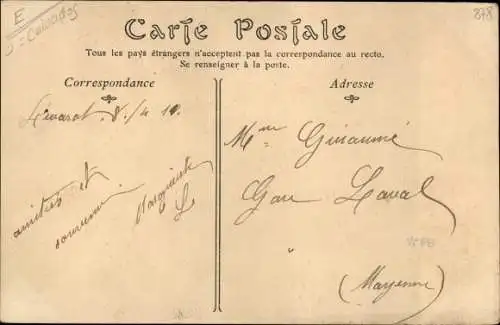 E
Calvados
878
Carte Postale
Tous les pays étrangers n'acceptent pas la correspondance au recto.
Se renseigner à la poste.
Correspondance
Livarot 8/4 10.
amitiés et
Marguerite
Adresse
Mme
Gare Laval
"
(Mayenne)